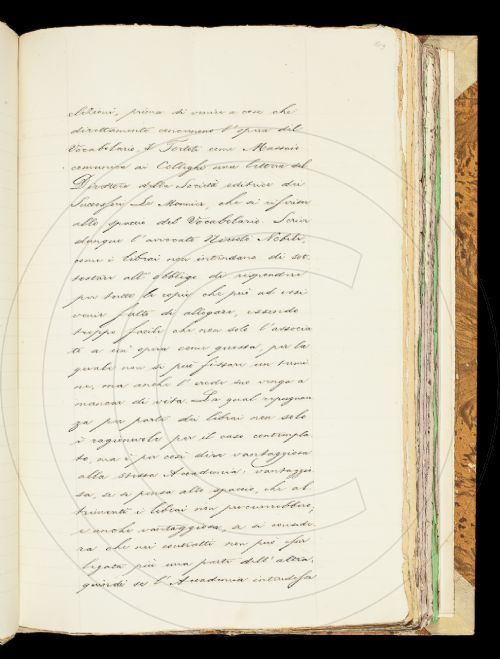 elezioni, prima di venire a cose che
direttamente concernono l'opera del
Vocabolario, il Tortoli come Massaio
comunica ai Colleghi una lettera del
Direttore della Società editrice dei
Successori Le Monnier, che si riferisce
allo spaccio del Vocabolario. Scrive
dunque l'avvocato Niccolò Nobili,
come i librai non intendano di sot
tostare all'obbligo di rispondere
per tutte le copie che può ad essi
venir fatto di allogare, essendo
troppo facile che non solo l'associa
to a un'opera come questa, per la
quale non si può fissare un termi
ne, ma anche l'erede suo venga a
mancar di vita. La qual repugnan
za per parte dei librai non solo
è ragionevole per il caso contempla
to, ma è per così dire vantaggiosa
alla stessa Accademia: vantaggio
sa, se si pensa allo spaccio, che al
trimenti i librai non procurerebbero;
e anche vantaggiosa, se si conside
ra che nei contratti non può esser
legata più una parte dell'altra;
quindi se l'Accademia intendesse